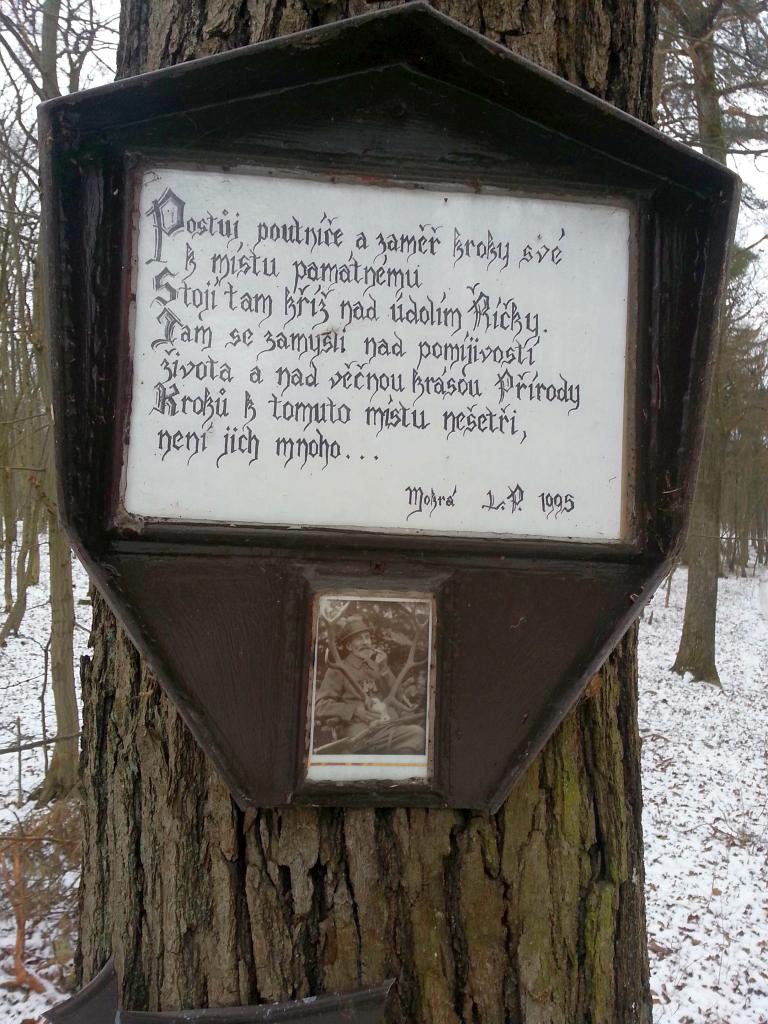 Postůj poutníče a zaměř kroky své
k místu památnému
Stojí tam kříž nad údolím Říčky.
Tam se zamysli nad pomíjivostí
života a nad věčnou krásou Přírody
Kroků k tomuto místu nešetři,
není jich mnoho...
Mokrá L.P. 1995